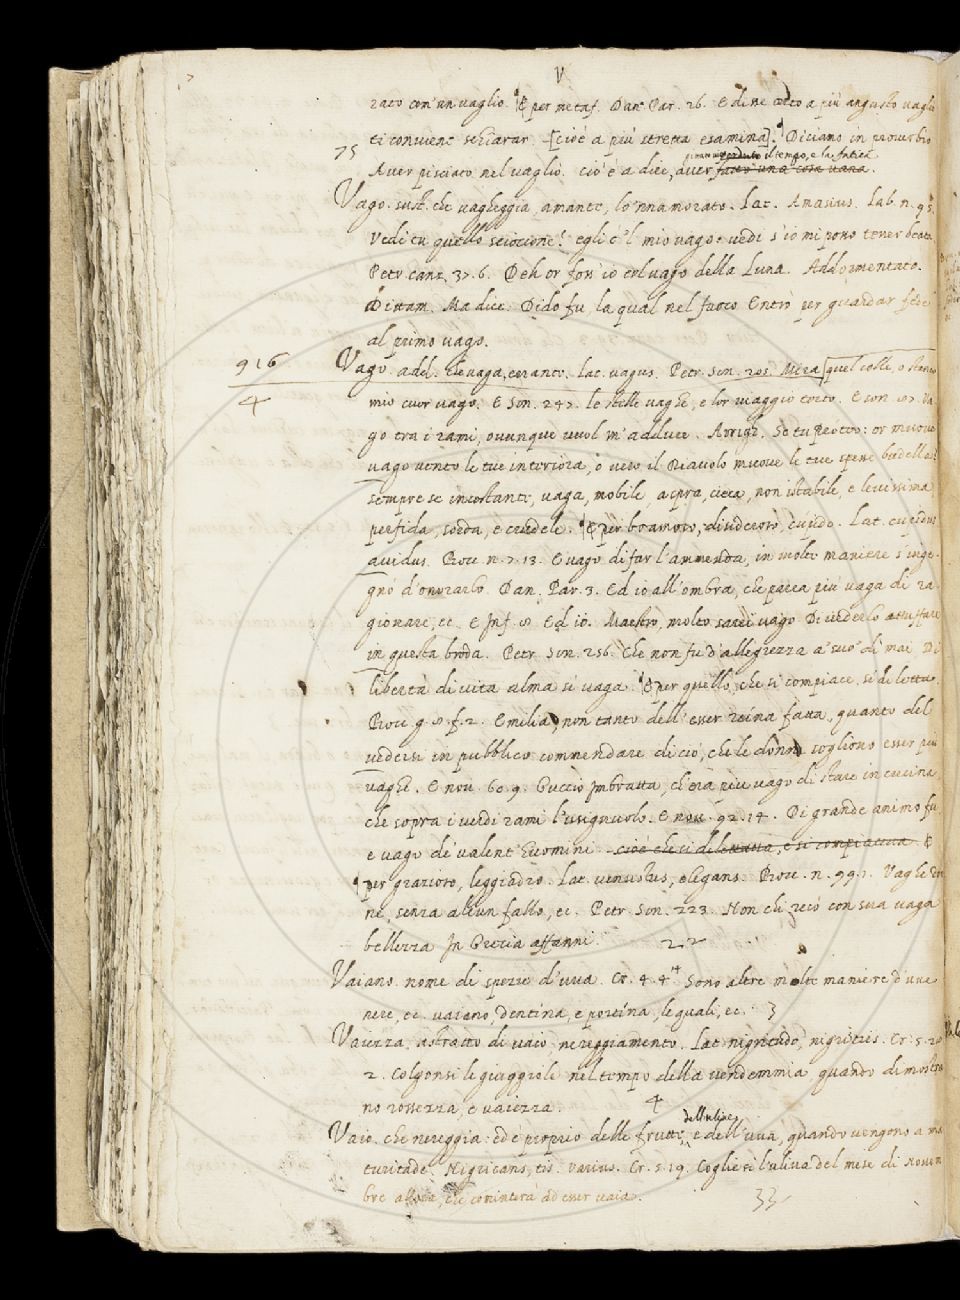 V
rato con un vaglio. E per metaf. Dan. Par. 26. E dine certo a più angusto vaglio
ti conviene schiarar [cioè a più stretta esamina]. Diciamo in proverbio
75
perduto il tempo, e la fatica
Aver pisciato nel vaglio. cio è a dire, aver fatto una cosa vana.
Vago. sust. che vagheggia, amante, lo 'nnamorato. Lat. Amasius. Lab. n. 95.
Vedi tu quello scioccone? egli è 'l mio vago: vedi s'io mi posso tener beata
Petr. canz. 37. 6. Deh or foss'io col vago della Luna. Addormentato.
Dittam. Ma dice. Dido fu, la qual nel fuoco Entrò per guardar fede
al primo vago.
916
4
Vago. add. che vaga, errante. Lat. vagus. Petr. Son. 205. Mira quel colle, o stanco
mio cuor vago. E Son. 247. le stelle vaghe, e lor viaggio torto. E son.
go tra i rami, ovunque vuol m'adduce. Arrigh. Se tu : or muove
vago vento le tue interiora, o vero il Diavolo muove le tue budella?
sempre se incostante, vaga, mobile aspra, cieca, non istabile, e levissima
perfida, sorda, e crudele. E per bramoso, disideroso, cupido. Lat. cupidus
avidus. Bocc. n. 7. 13. E vago di far l'ammenda, in molte maniere s'inge-
gnò d'onorarlo. Dan. Par. 3. Ed io all'ombra, che parea più vaga di ra-
gionare, ec. E Inf. 8. Ed io. Maestro, molto sarei vago Di vederlo attuffare
in questa broda. Petr. Son. 256. Che non fu d'allegrezza a' suo' dì mai Di
libertà di vita alma sì vaga. E per quello, che si compiace, si diletta.
Bocc. g. 8. f. 2. Emilia, non tanto dell'esser reina fatta, quanto del
vedersi in pubblico commendare di ciò, che le donne sogliono esser più
vaghe. E nov. 60. 9. Guccio Imbratta, ch'era più vago di stare in cucina,
che sopra i verdi rami l'usignuolo. E nov. 92. 14. Di grande animo fu,
e vago de' valent'huomini cioè che si dilettava, e si compiaceva. E
per grazioso, leggiadro. Lat. venustus, elegans. Bocc. n. 99. 1. Vaghe don
ne, senza alcun fallo, ec. Petr. Son. 223. Non chi recò con sua vaga
bellezza In Grecia affanni. 22
Vaiano. nome di spezie d'uva. Cr. 4. 4. 14 Sono altre molte maniere d'uve
nere, ec. vaiano, dentina, e portina, le quali, ec. 3
Vaiezza, astratto di vaio nereggiamento. Lat. nigritudo, nigrities. Cr. 5.
2. Colgonsi le giuggiole nel tempo della vendemmia quando dimostra
no rossezza, e vaiezza.
4
dell'ulive,
Vaio. che nereggia: ed è proprio delle frutte, e dell'uva, quando vengono a ma
turitade. Nigricans, tis. varius. Cr. 5. 19. Cogliesi l'uliva del mese di Novem
bre allora, che comincerà ad esser vaia.
33